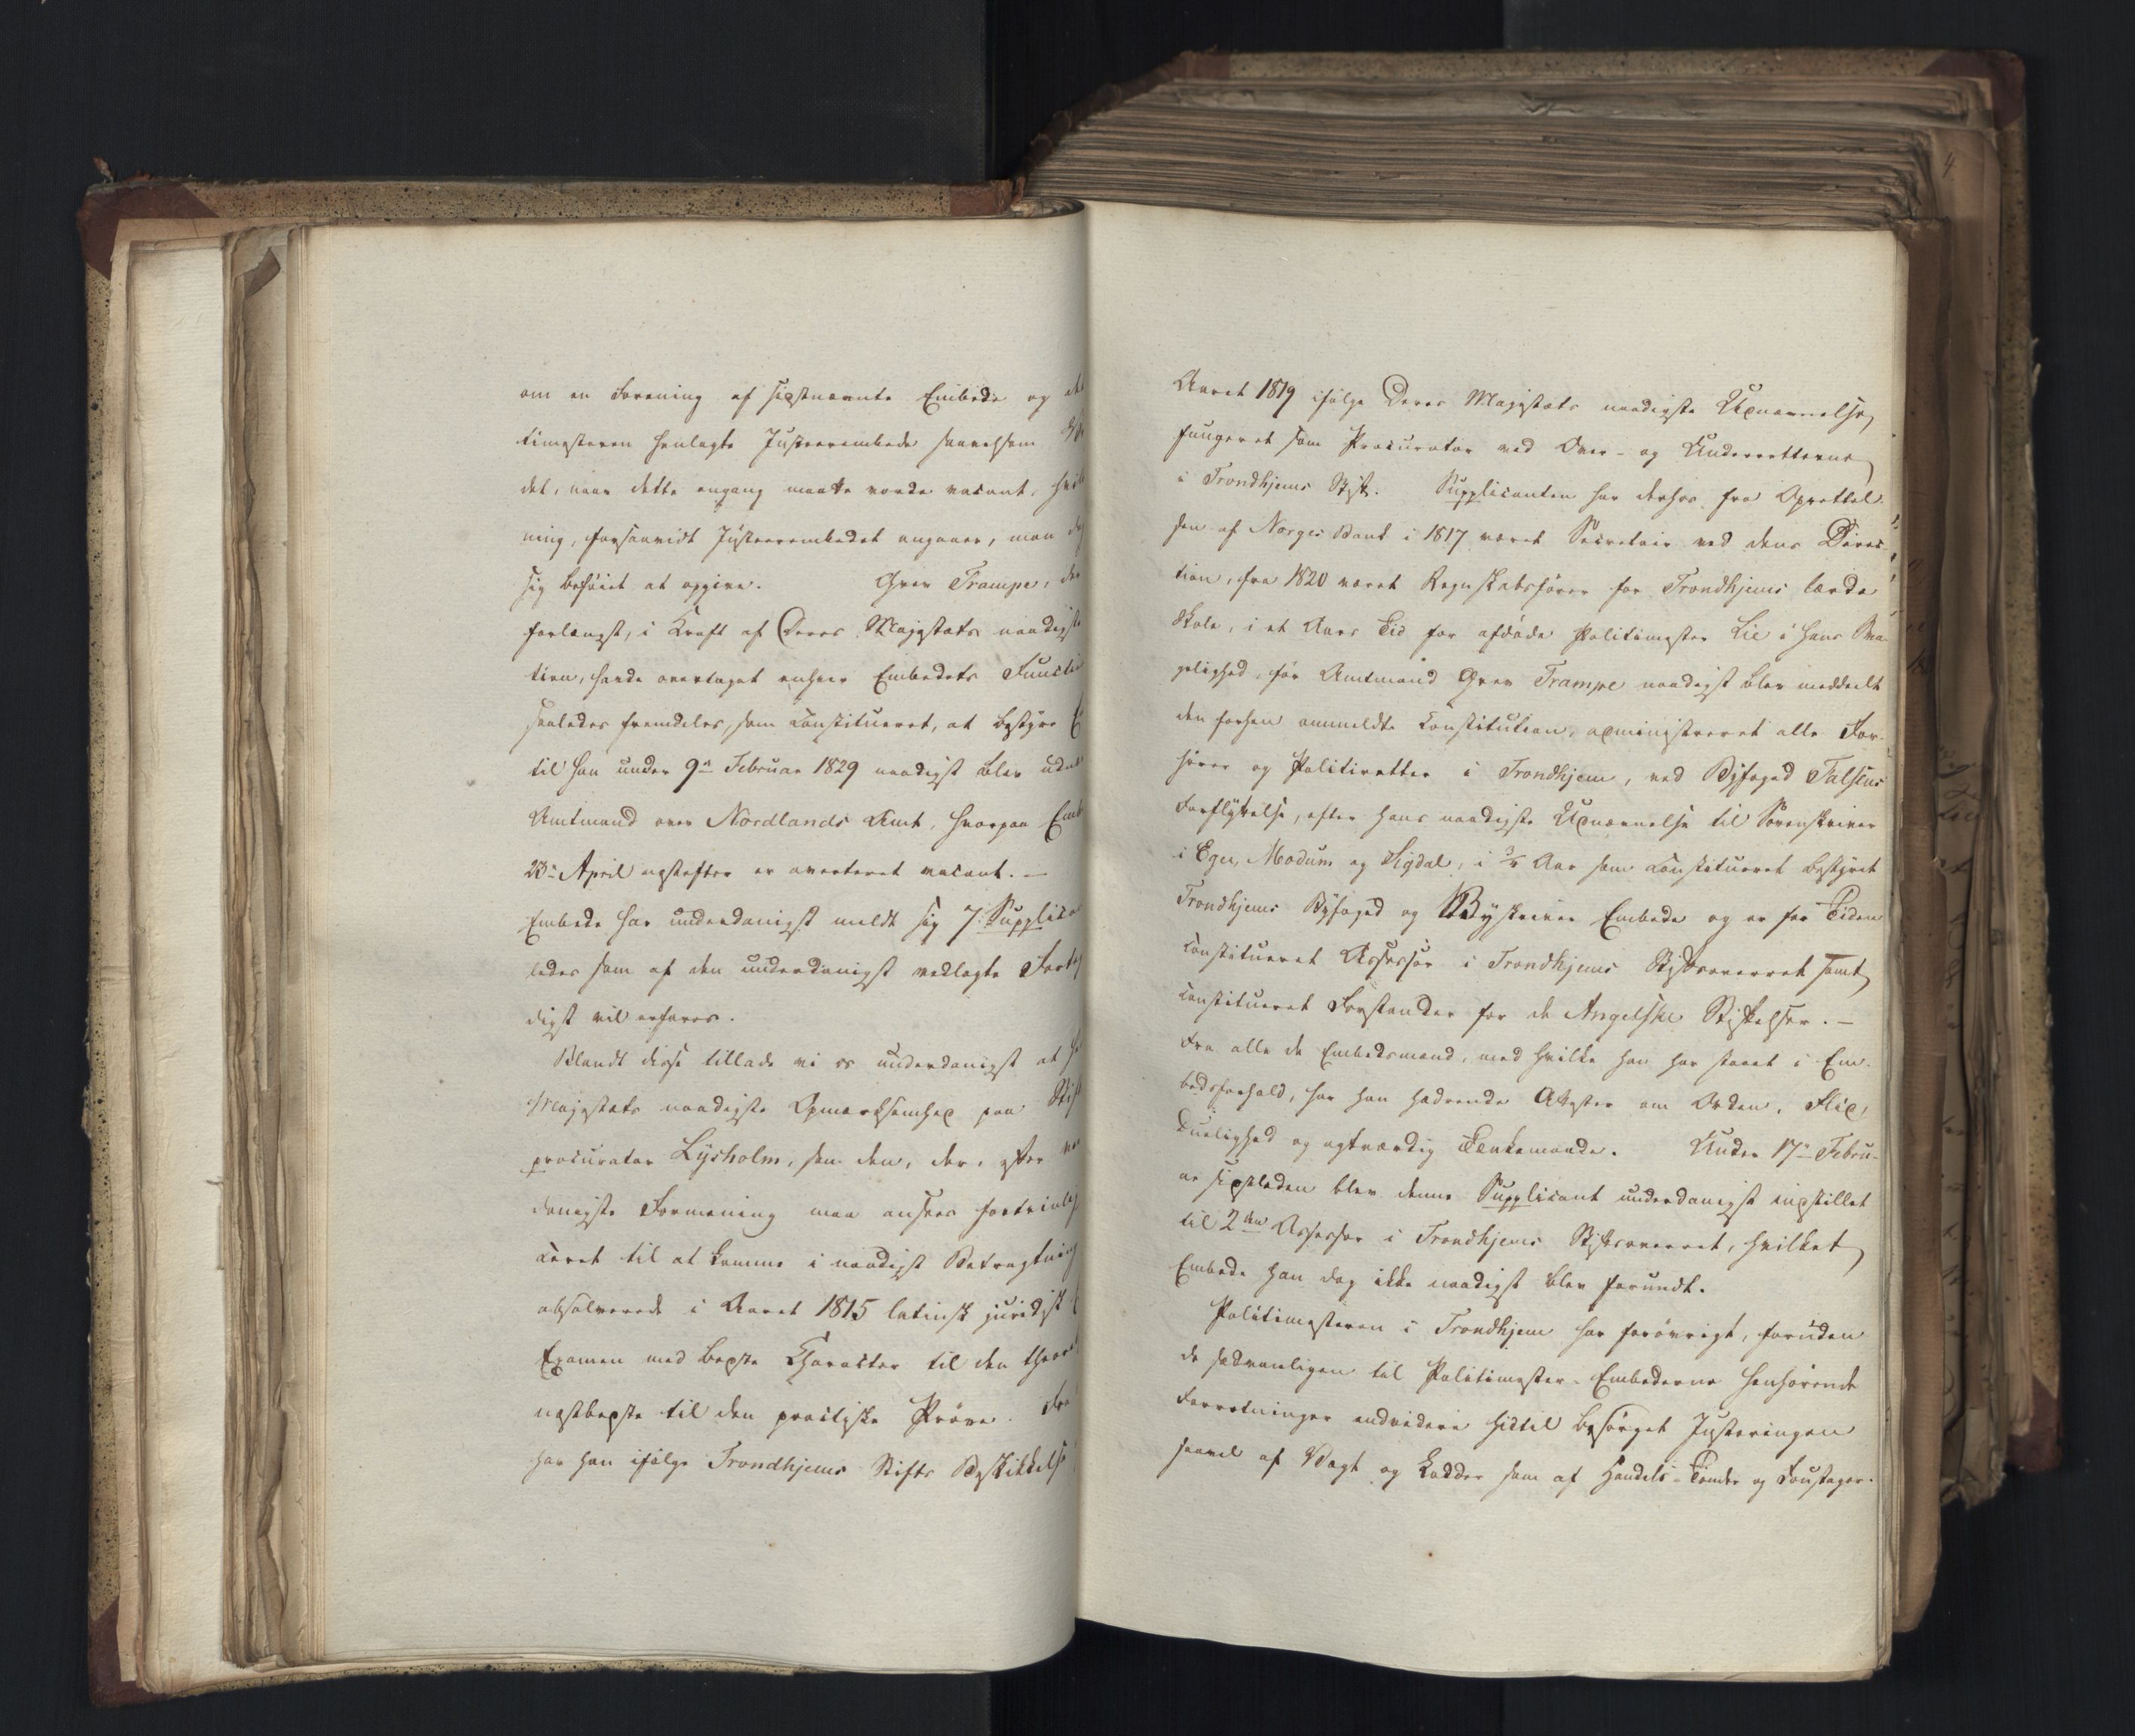 om en Forening af sidstnævnte Embede og det
timesteren henlagte Justeerembede saavelsom
det, naar dette engang maatte vorde vacant, hvil
ning, forsaavidt Justeerembedet angaaer, man
sig beføiet at opgive. Grev Trampe, der
forlængst, i Kraft af Deres Majestæts naadigste
tion, havde overtaget enhver Embedets Functi
saaledes fremdeles, som constitueret, at bestyre
til han under 9de Februar 1829 naadigst blev udn
Amtmand over Nordlands Amt, hvorpaa Emb
23de April næstefter er averteret vacant. —
Embede har underdanigst meldt sig 7 Supplica
ledes som af den underdanigst vedlagte Forteg
digst vil erfares.
Blandt disse tillade vi os underdanigst at he
Majestæts naadigste Opmærksomhed paa Stif
procurator Lysholm, som den, der, efter vor
danigste Formening maa ansees fortrinlig
ceret til at komme i naadigst Betragtning
absolverede i Aaret 1815 latinsk juridisk
Examen med bedste Character til den theoret
næstbedste til den practiske Prøve. Fra
har han ifølge Trondhjems Stifts Beskikkelse
Aaret 1819 ifølge Deres Majestæts naadigste Udnævnelse,
fungeret som Procurator ved Over- og Underretterne
i Trondhjems Stift. Supplicanten har derhos fra Oprettel-
sen af Norges Bank i 1817 været Secretair ved dens Direc-
tion, fra 1820 været Regnskabsfører for Trondhjems lærde
Skole, i et Aars Tid for afdøde Politimester Lie i hans Sva-
gelighed, før Amtmand Grev Trampe naadigst blev meddeelt
den forhen ommeldte Constitution, administreret alle For-
hører og Politiretter i Trondhjem, ved Byfoged Falsens
Forflyttelse, efter hans naadigste Udnævnelse til Sorenskriver
i Eger, Modum og Sigdal, i 3/4 Aar som constitueret bestyret
Trondhjems Byfoged og Byskriver Embede og er for Tiden
constitueret Assessor i Trondhjems Stiftsoverret samt
constitueret Forstander for de Angelske Stiftelser. —
Fra alle de Embedsmænd, med hvilke han har staaet i Em-
bedsforhold, har han hædrende Attester om Orden, Flid,
Duelighed og agtværdig Tænkemaade. Under 17de Febru-
ar sidstleden blev denne Supplicant underdanigst indstillet
til 2den Assessor i Trondhjems Stiftsoverret, hvilket
Embede han dog ikke naadigst blev forundt.
Politimesteren i Trondhjem har forøvrigt, foruden
de sædvanligen til Politimester-Embederne henhørende
Forretninger endvidere hidtil besørget Justeringen
saavel af Vægt og Lodder som af Handels-Tønder og Foustager.